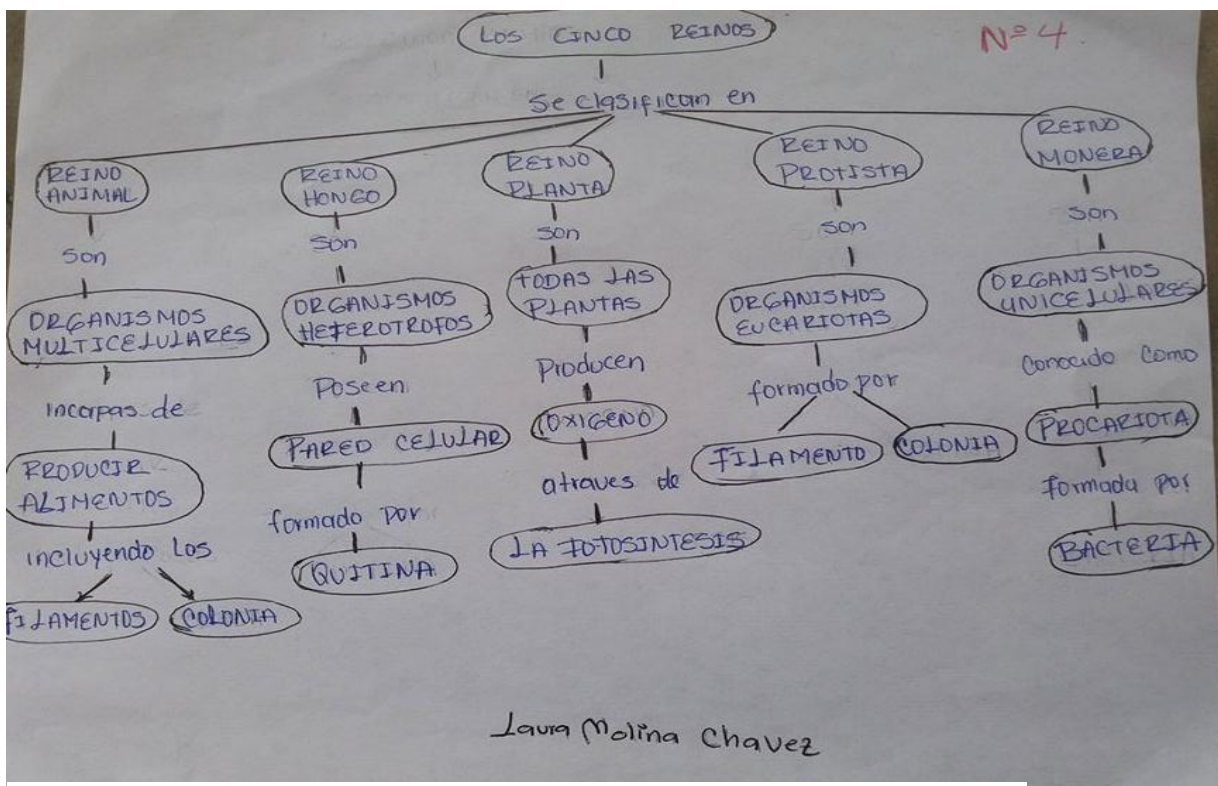 LOS CINCO REINOS
Nº 4
Se clasifican en
REINO
ANIMAL
son
ORGANISMOS
MULTICELULARES
incapas de
PRODUCIR
ALIMENTOS
incluyendo los
FILAMENTOS
COLONIA
REINO
HONGO
son
ORGANISMOS
HETEROTROFOS
Poseen
PARED CELULAR
formado por
QUITINA
REINO
PLANTA
son
TODAS LAS
PLANTAS
Producen
OXIGENO
atraves de
LA FOTOSINTESIS
REINO
PROTISTA
son
ORGANISMOS
EUCARIOTAS
formado por
FILAMENTO
COLONIA
REINO
MONERA
son
ORGANISMOS
UNICELULARES
Conocido como
PROCARIOTA
formada por
BACTERIA
Laura Molina Chavez